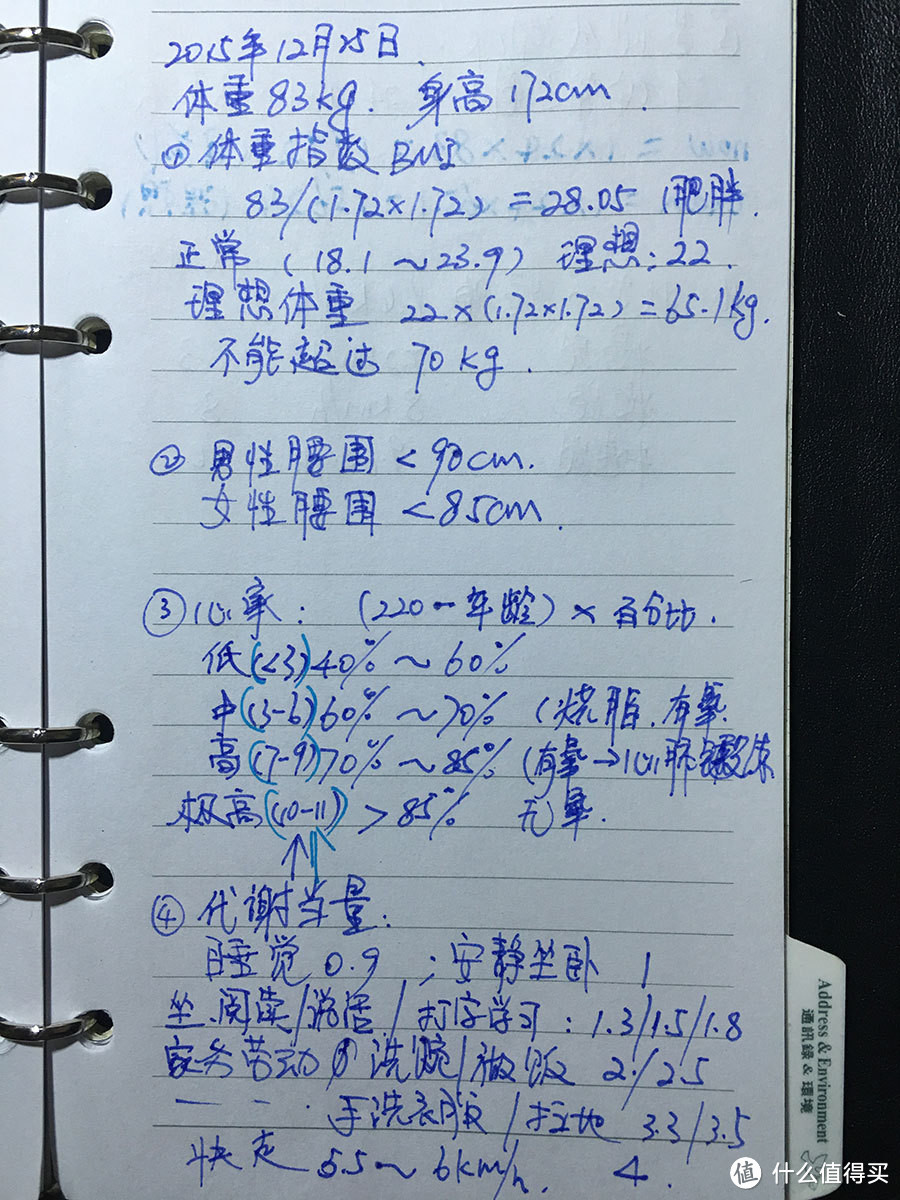 2015年12月25日.
体重83kg. 身高172cm.
① 体重指数 BMI
83/(1.72×1.72)=28.05 (肥胖.
正常 (18.1~23.9) 理想:22.
理想体重 22×(1.72×1.72)=65.1kg.
不能超过 70kg.
② 男性腰围 <90cm.
女性腰围 <85cm.
③ 心率: (220-年龄)×百分比.
低(<3)40%~60%
中(3-6)60%~70% (烧脂.有氧
高(7-9)70%~85% (有氧→心肺
极高(10-11) >85% 无氧.
④ 代谢当量:
睡觉 0.9 ;安静坐卧 1
坐.阅读/说话/打字学习:1.3/1.5/1.8
家务劳动 洗碗/做饭 2/2.5
— — . 手洗衣服/拄地 3.3/3.5
快走 5.5~6km/h. 4
Address & Environment
通訊錄 & 環境
值 什么值得买